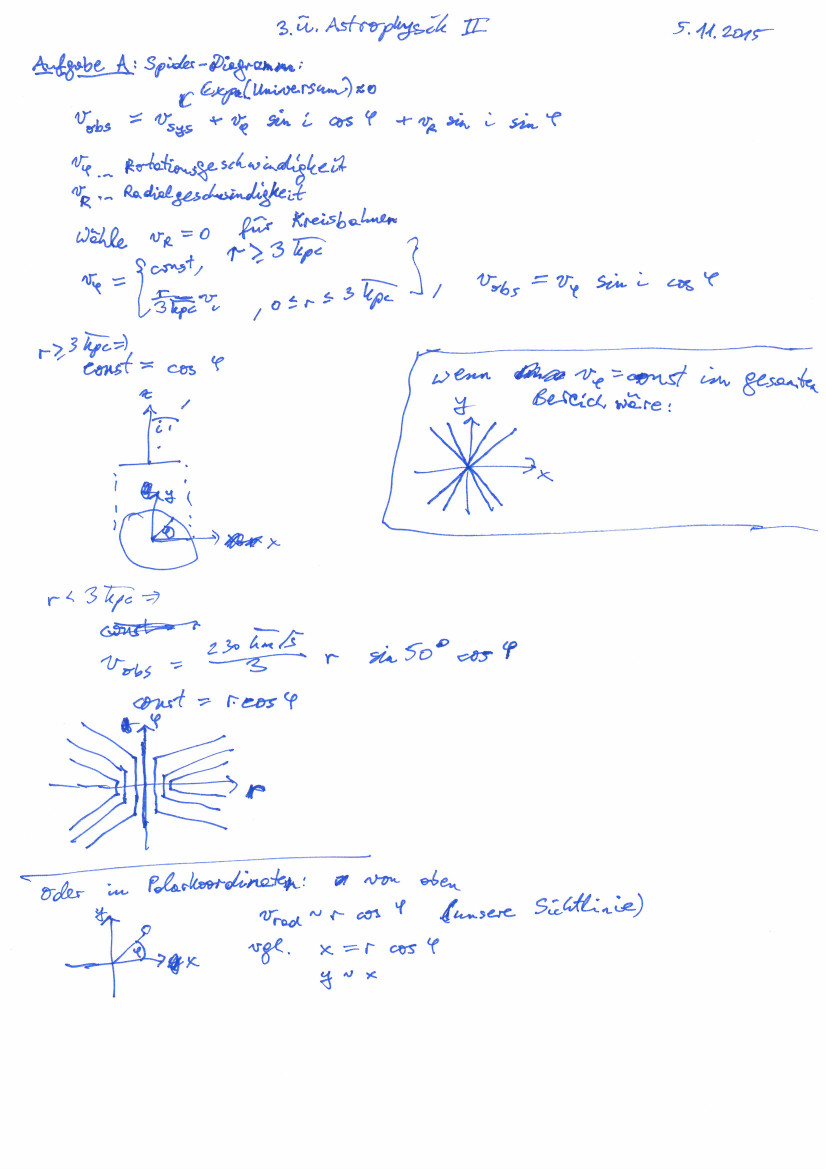 3. Ü. Astrophysik II 5.11.2015
Aufgabe A: Spider-Diagramm:
Expa(Universum)≈0
v_obs = v_sys + v_φ sin i cos φ + v_R sin i sin φ
v_φ ... Rotationsgeschwindigkeit
v_R ... Radialgeschwindigkeit
Wähle v_R = 0 für Kreisbahnen
v_φ = { const, r ≥ 3 kpc
r/3 kpc v_i , 0 ≤ r ≤ 3 kpc } , v_obs = v_φ sin i cos φ
r ≥ 3 kpc ⇒
const = cos φ
wenn v_φ = const im gesamten
Bereich wäre:
y
x
z
i
y
x
r < 3 kpc ⇒
v_obs = 230 km/s / 3 r sin 50° cos φ
const = r · cos φ
φ
r
oder in Polarkoordinaten: von oben
v_rad ~ r cos φ (unsere Sichtlinie)
vgl. x = r cos φ
y ~ x
y
φ
x